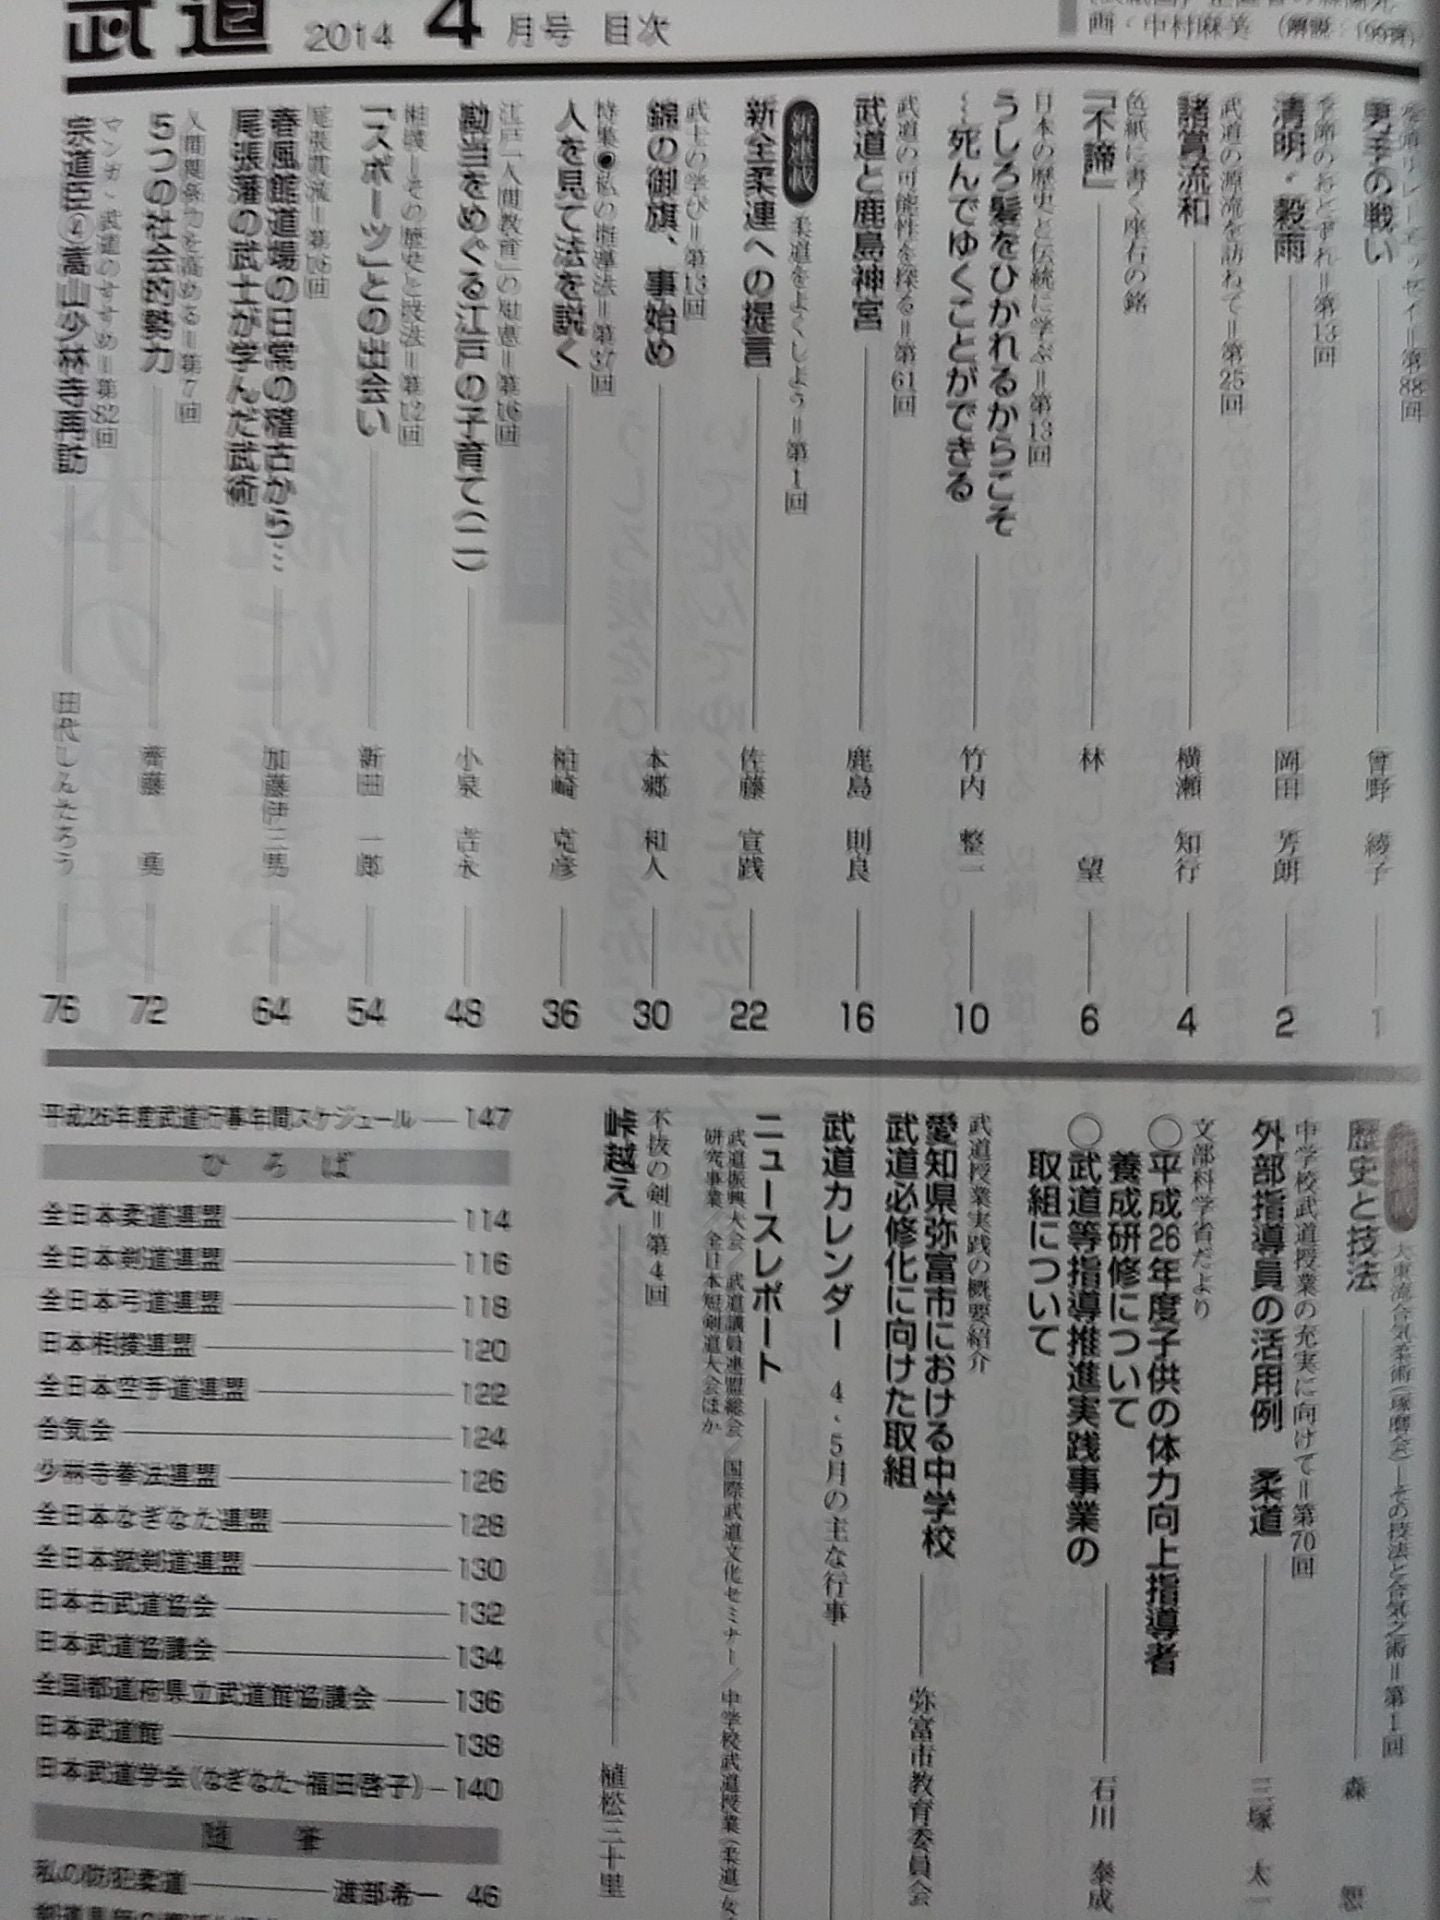 武道 2014 4月号 目次
画・中村麻美
季節のおとずれ＝第13回
清明・穀雨 岡田 芳朗 2
武道の源流を訪ねて＝第25回
諸賞流和 横瀬 知行 4
色紙に書く座右の銘
「不諦」 林 望 6
日本の歴史と伝統に学ぶ＝第13回
うしろ髪をひかれるからこそ
〜死んでゆくことができる 竹内 整一 10
武道の可能性を探る＝第61回
武道と鹿島神宮 鹿島 則良 16
新連載 柔道をよくしよう＝第1回
新全柔連への提言 佐藤 宣践 22
武士の学び＝第13回
錦の御旗、事始め 本郷 和人 30
特集●私の指導法＝第37回
人を見て法を説く 柏崎 克彦 36
江戸「人間教育」の知恵＝第16回
勘当をめぐる江戸の子育て(二) 小泉 吉永 48
相撲―その歴史と技法＝第12回
「スポーツ」との出会い 新田 一郎 54
尾張貫流＝第16回
春風館道場の日常の稽古から…
尾張藩の武士が学んだ武術 加藤伊三男 64
人間関係力を高める＝第7回
5つの社会的勢力 齊藤 勇 72
マンガ・武道のすすめ＝第82回
宗道臣④嵩山少林寺再訪 田代しんたろう 76
新連載 大東流合気柔術(琢磨会)―その技法と合気之術＝第1回
歴史と技法 森 恕
中学校武道授業の充実に向けて＝第70回
外部指導員の活用例 柔道 三塚 太一
文部科学省だより
○平成26年度子供の体力向上指導者
養成研修について
○武道等指導推進実践事業の
取組について 石川 泰成
武道授業実践の概要紹介
愛知県弥富市における中学校
武道必修化に向けた取組 弥富市教育委員会
武道カレンダー 4・5月の主な行事
ニュースレポート
武道振興大会／武道議員連盟総会／国際武道文化セミナー／中学校武道授業(柔道)
研究事業／全日本短剣道大会ほか
不抜の剣＝第4回
峠越え 植松三十里
平成26年度武道行事年間スケジュール 147
ひろば
全日本柔道連盟 114
全日本剣道連盟 116
全日本弓道連盟 118
日本相撲連盟 120
全日本空手道連盟 122
合気会 124
少林寺拳法連盟 126
全日本なぎなた連盟 128
全日本銃剣道連盟 130
日本古武道協会 132
日本武道協議会 134
全国都道府県立武道館協議会 136
日本武道館 138
日本武道学会(なぎなた・福田啓子) 140
随筆
私の防犯柔道 渡部希一 46